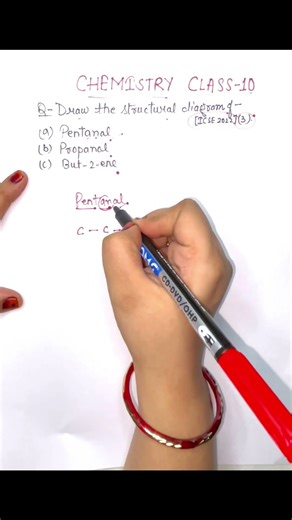 CHEMISTRY CLASS-10
Q- Draw the structural diagram of-
[ICSE 2023](3).
(a) Pentanal.
(b) Propanal.
(c) But-2-ene
Pentanal.
C - C -
OHP CD-DVD/OHP